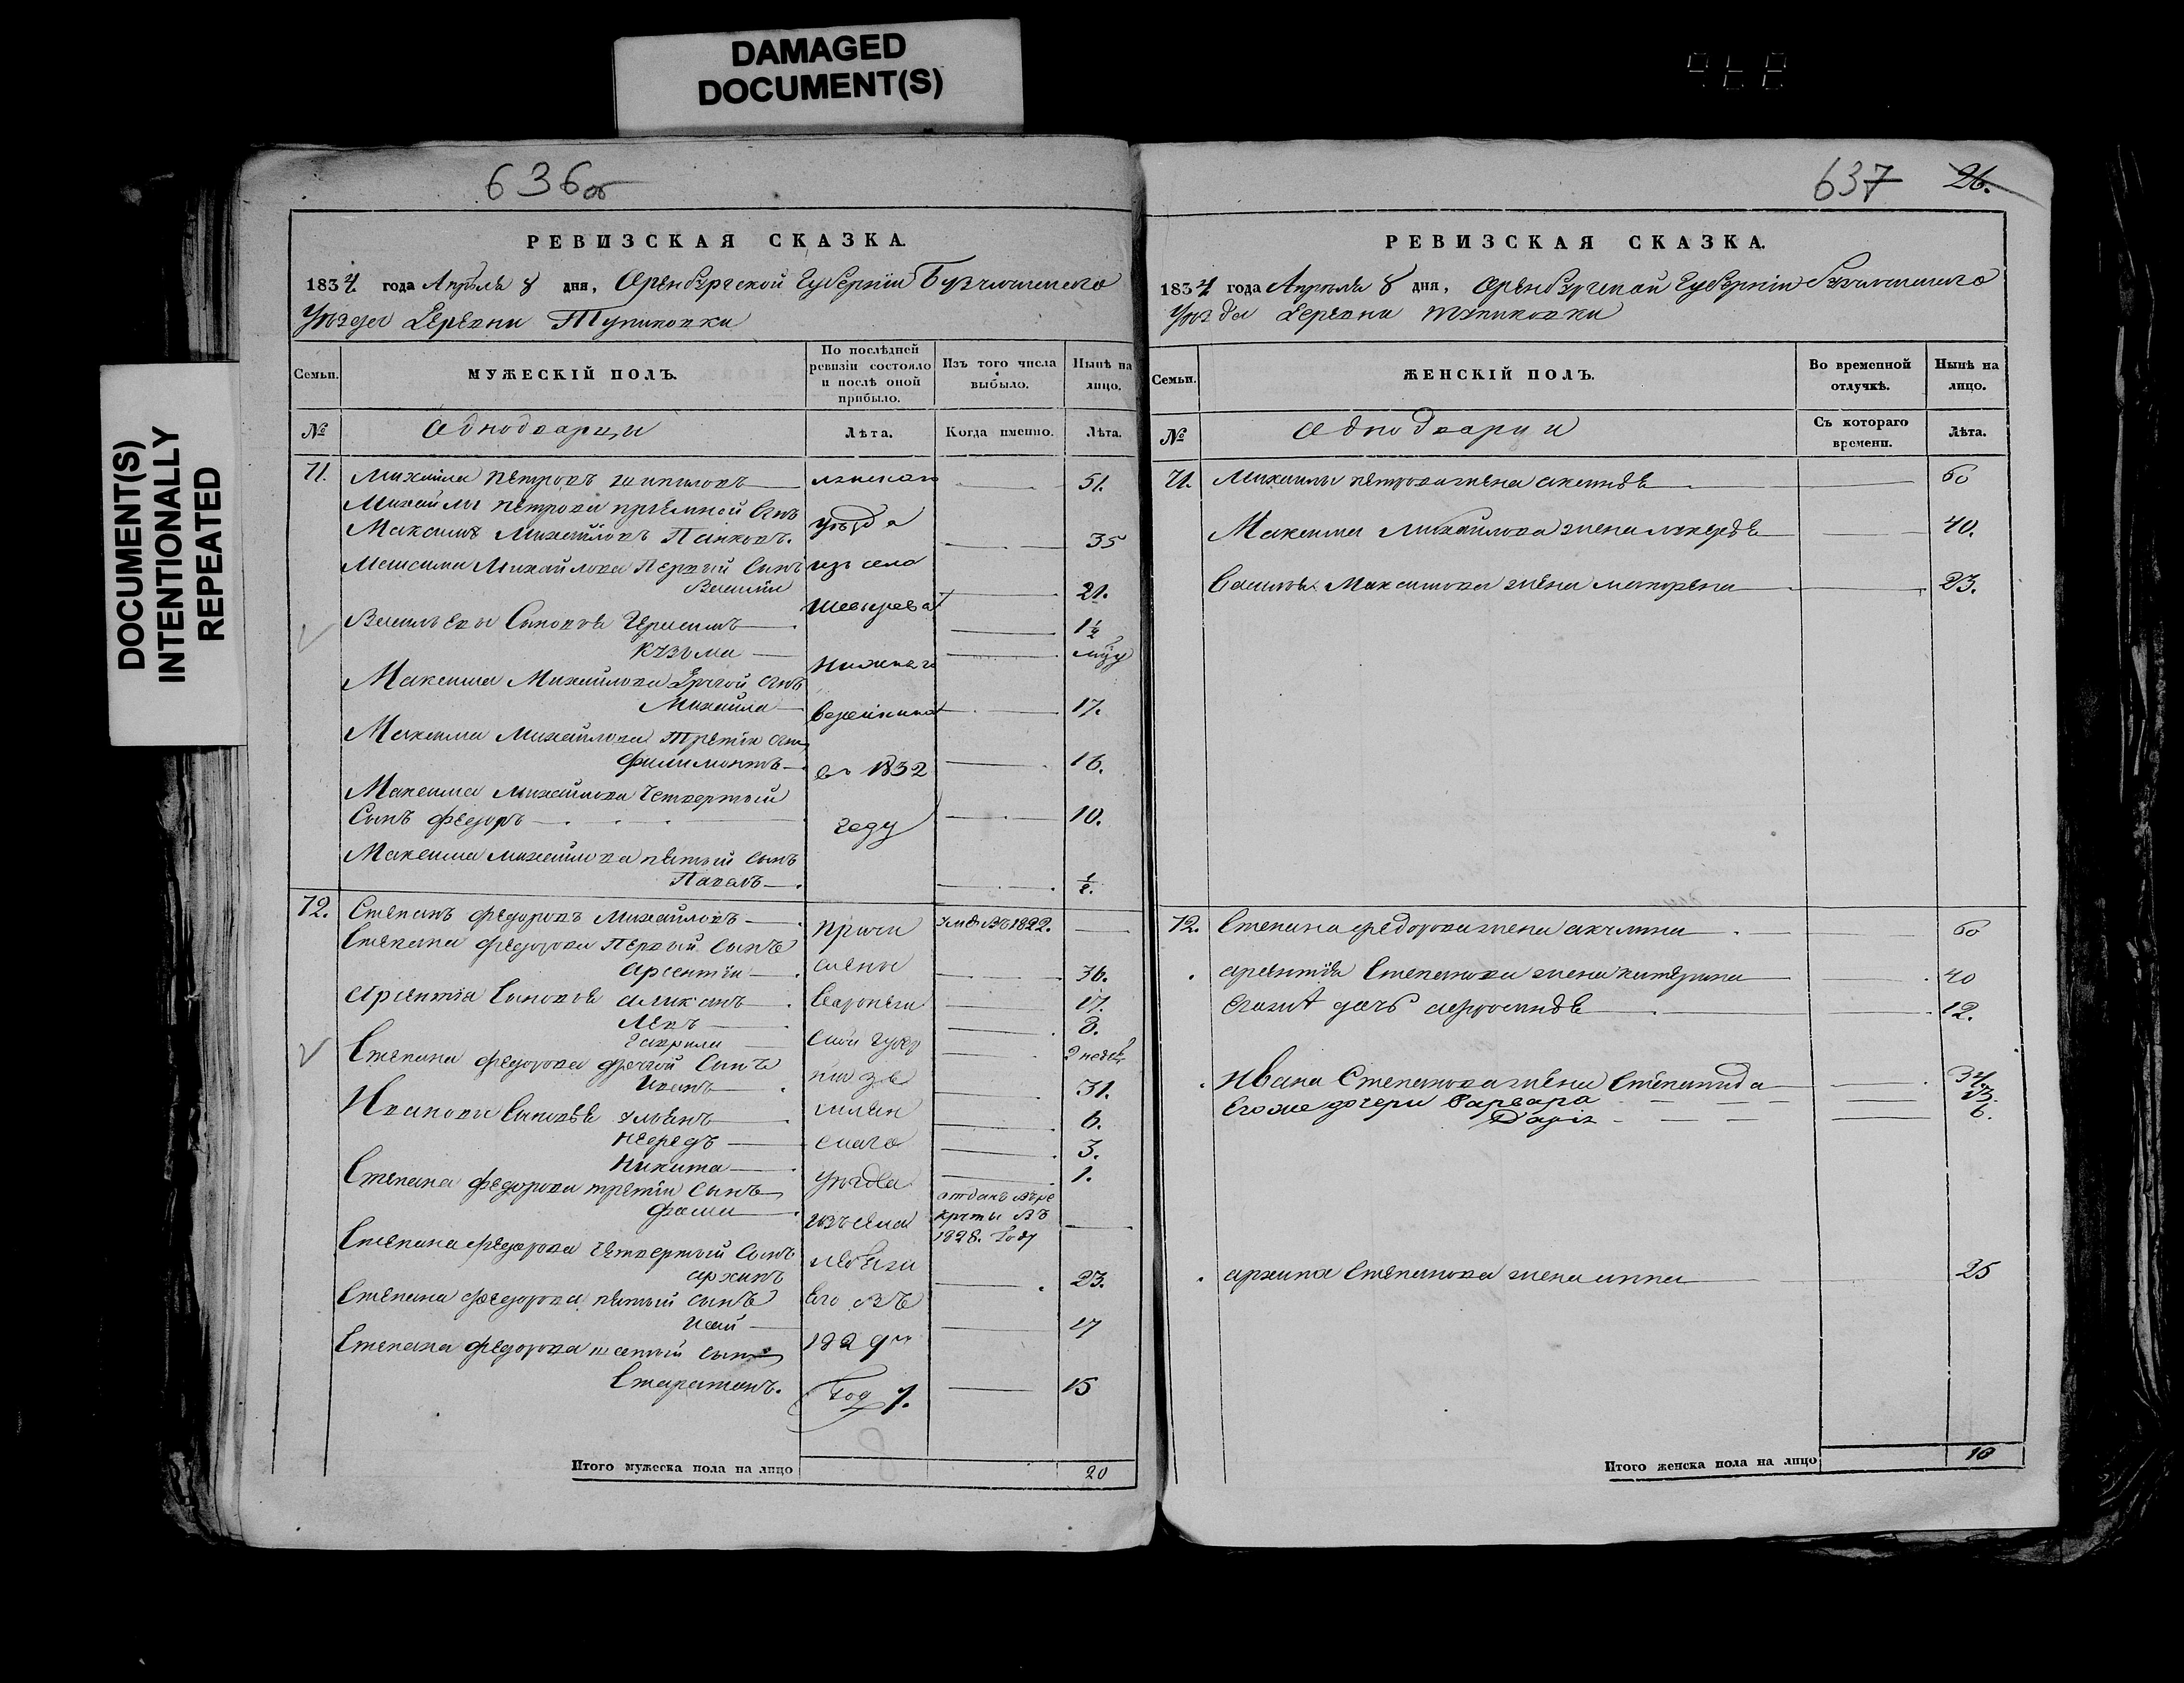 DAMAGED
DOCUMENT(S)
DOCUMENT(S)
INTENTIONALLY
REPEATED
636об
РЕВИЗСКАЯ СКАЗКА.
1834 года Апреля 8 дня, Оренбургской Губернии Бузулукского
Уезда Деревни Тупиковки
Семьи.
МУЖЕСКІЙ ПОЛЪ.
По послѣдней
ревизіи состояло
и послѣ оной
прибыло.
Изъ того числа
выбыло.
Нынѣ на
лицо.
№
Однодворцы
Лѣта.
Когда именно.
Лѣта.
71.
Михайла Петровъ
51.
Михайлы Петрова приемной Сынъ
уезда
Максимъ Михайловъ Панковъ.
35
Максима Михайлова Первый Сынъ
изъ села
Василии
21.
Васильевы Сыновья Герасимъ
1½
Кузьма
Максима Михайлова Другой Сынъ
Михайла
17.
Максима Михайлова Третiй Сынъ
Филимонъ
16.
въ 1832
Максима Михайлова Четвертый
Сынъ Федоръ
10.
году
Максима Михайлова пятый Сынъ
Павелъ
½.
72.
Степанъ Федоровъ Михайловъ
причи
умеръ въ 1822.
Степана Федорова Первый Сынъ
слены
Арсентiй
36.
Арсентiя Сыновья
17.
Левъ
8.
Гаврила
2 недел
Степана Федорова другой Сынъ
Иванъ
31.
Ивановы Сыновья Ульянъ
6.
3.
Никита
1.
Степана Федорова третiй Сынъ
уезда
Фома
отданъ въ ре
круты въ
1828. Году
Степана Федорова четвертый Сынъ
Архипъ
23.
Степана Федорова пятый Сынъ
его въ
Исай
17
Степана Федорова шестый Сынъ
1829го
Стератонъ.
Году.
15
Итого мужеска пола на лицо
20
637
26.
РЕВИЗСКАЯ СКАЗКА.
1834 года Апреля 8 дня, Оренбургской Губернiи Бузулукского
Уезда Деревни Тупиковки
Семьи.
ЖЕНСКІЙ ПОЛЪ.
Во временной
отлучкѣ.
Нынѣ на
лицо.
№
Однодворцы
Съ котораго
времени.
Лѣта.
71.
Михайлы Петрова жена Аксинья
60
Максима Михайлова жена Лукерья
40.
Василья Максимова жена Матрена
23.
72.
Степана Федорова жена Акулина
60
Арсентiя Степанова жена Катерина
40
дочь Афросинья
12.
Ивана Степанова жена Степанида
34.
Егоже дочери Варвара
13.
Дарiя
6.
Архипа Степанова жена Анна
25
Итого женска пола на лицо
10